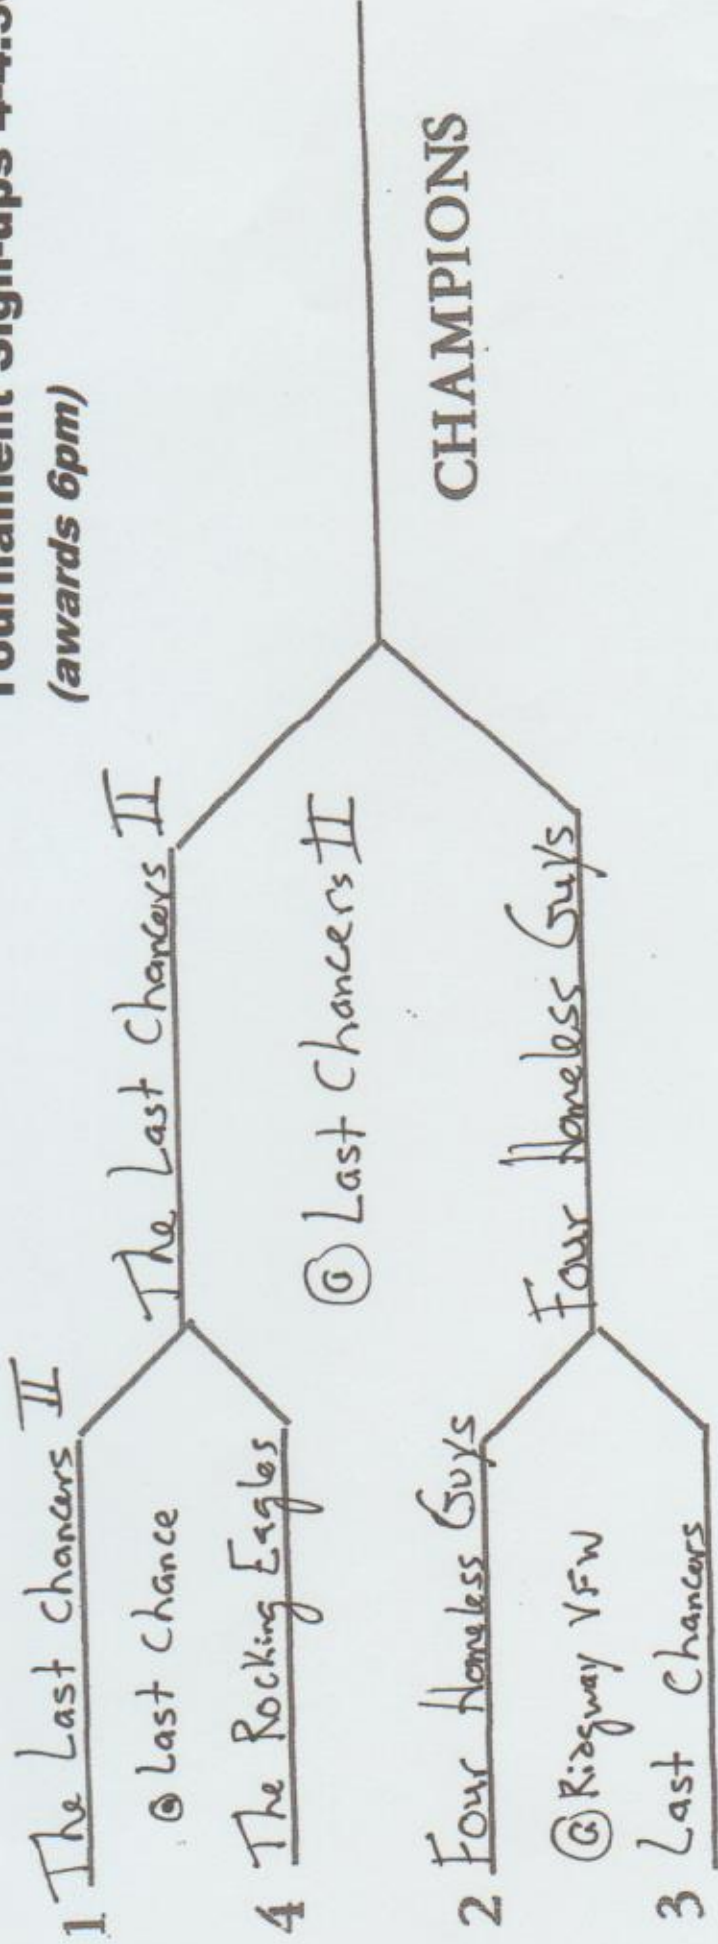 Tournament Sign-ups
(awards 6pm)
1 The Last Chancers II
@ Last Chance
4 The Rocking Eagles
The Last Chancers II
@ Last Chancers II
2 Four Homeless Guys
@ Ridgway VFW
3 Last Chancers
Four Homeless Guys
CHAMPIONS